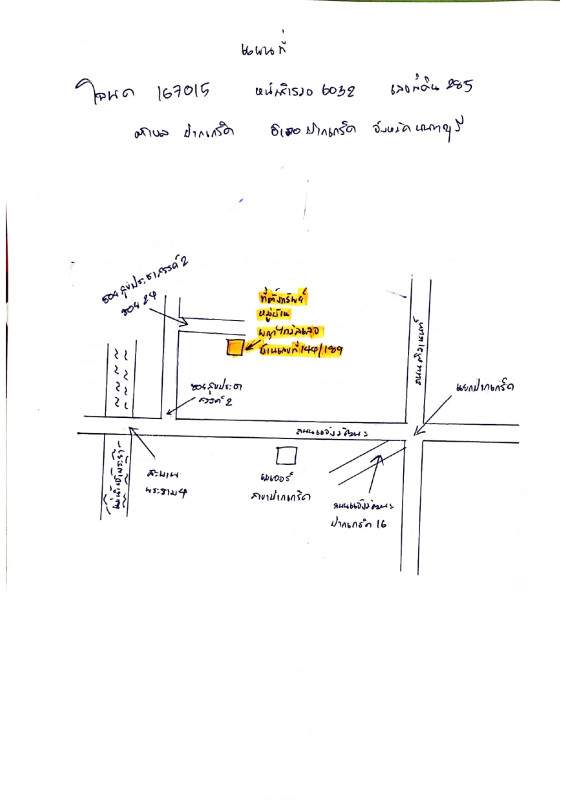 แผนที่
โฉนด 167015 หน้าสำรวจ 6032 เลขที่ดิน 285
ตำบล ปากเกร็ด อำเภอ ปากเกร็ด จังหวัด นนทบุรี
ซอยสุขประชาสรรค์ 2
ซอย 24
ที่ตั้งทรัพย์
หมู่บ้าน
บ้านเลขที่ 144/189
ถนนติวานนท์
แยกปากเกร็ด
ซอยสุขประชา
สรรค์ 2
ถนนแจ้งวัฒนะ
แม่น้ำเจ้าพระยา
สะพาน
พระราม 4
เมเจอร์
สาขาปากเกร็ด
ถนนแจ้งวัฒนะ
ปากเกร็ด 16